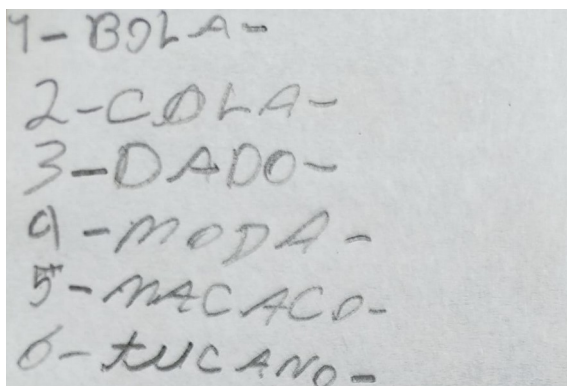 1- BOLA-
2- COLA-
3- DADO-
4- MODA-
5- MACACO-
6- tUCANO-